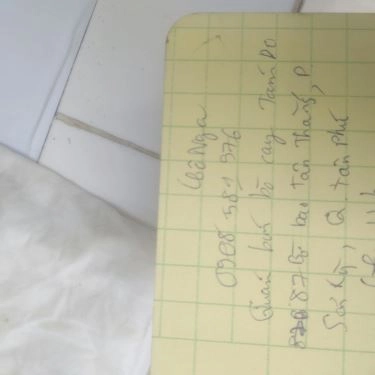 Cô Nga
0908 581 576
Quán bún bò cay Tám Do
87 Bờ bao Tân Thắng, P.
Sơn Kỳ, Q. Tân Phú